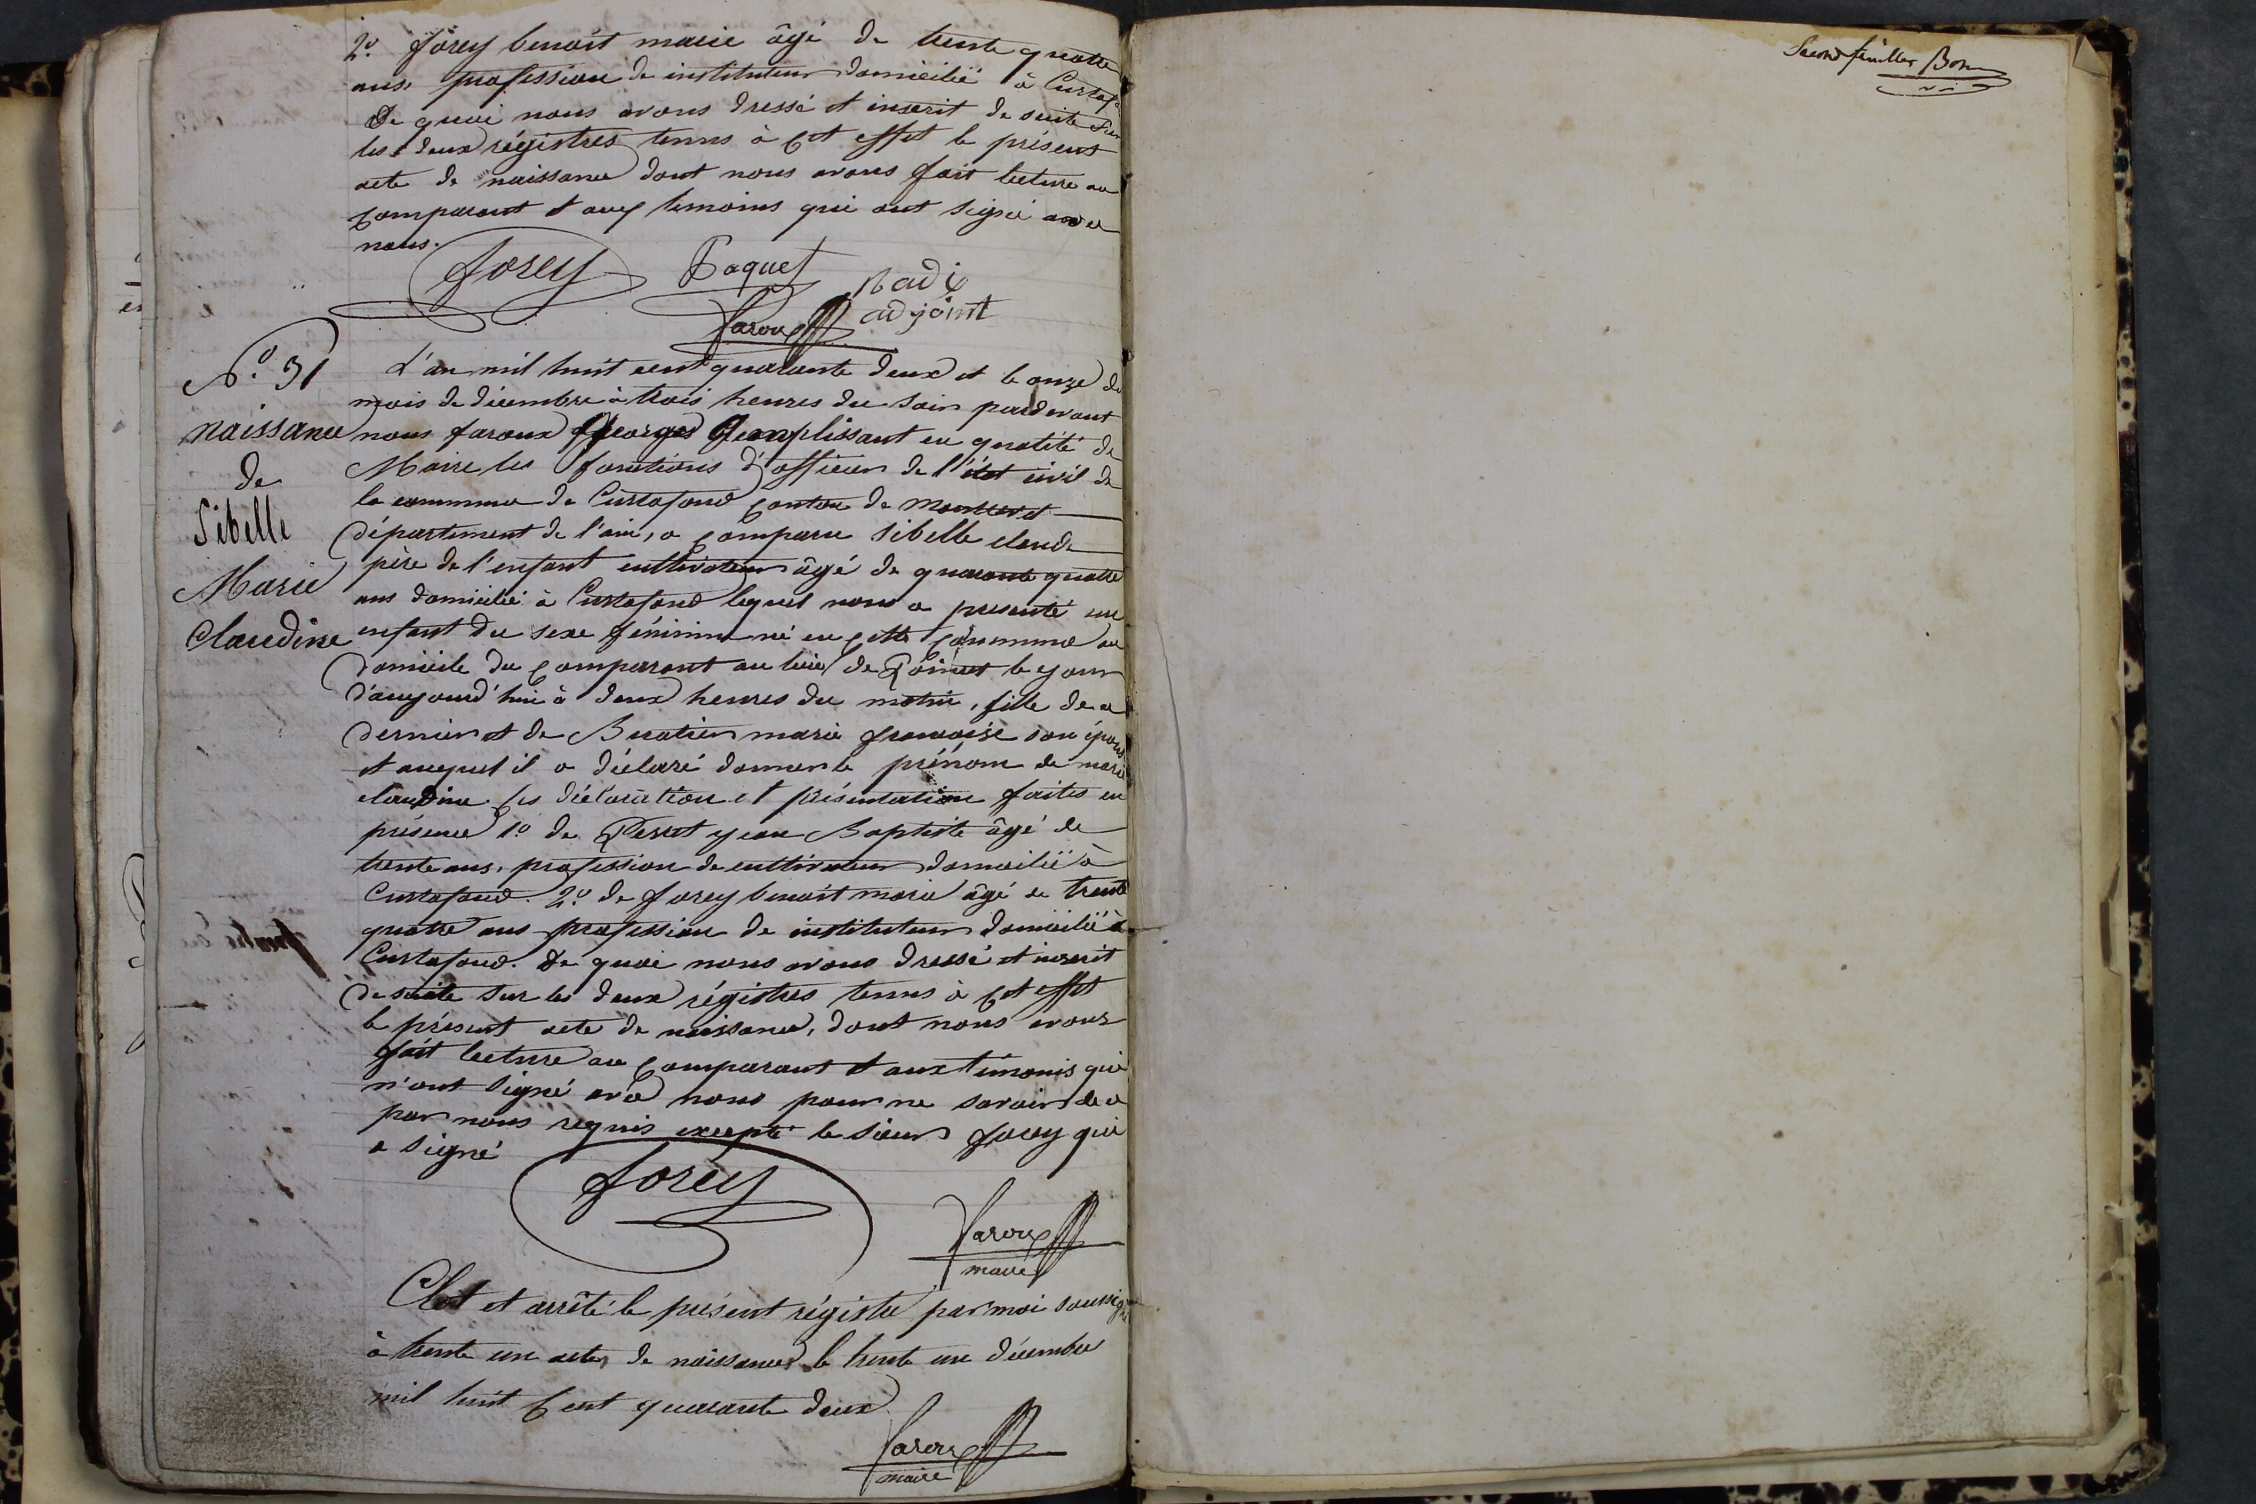 2º. forey benoit marie âgé de trente quatre
ans, profession de instituteur domicilié à Curtaf
De quoi nous avons dressé et inscrit de suite sur
les deux régistres tenus à cet effet le présent
acte de naissance dont nous avons fait lecture au
comparant et aux temoins qui ont signé avec
nous.
forey Paquet Badi
adjoint
faroux
Nº. 31
naissance
de
Sibelle
Marie
Claudine
L'an mil huit cent quarante deux et le onze du
mois de décembre à trois heures du soir pardevant
nous faroux Georges remplissant en qualité de
Maire les fonctions d'officier de l'état civil de
la commune de Curtafond canton de Montrevet
département de l'ain, a comparu Sibelle claude
père de l'enfant cultivateur âgé de quarante quatre
ans domicilié à Curtafond lequel nous a presenté un
enfant du sexe féminin né en cette commune au
domicile du comparant au lieu de le jour
d'aujourd'hui à deux heures du matin, fille de ce
dernier et de Buatier marie francoise son épouse
et auquel il a déclaré donner le prénom de marie
claudine les déclaration et présentation faites en
présence 1º. de Perret jean Baptiste âgé de
trente ans, profession de cultivateur domicilié à
Curtafond. 2º. de forey benoit marie âgé de trente
quatre ans profession de instituteur domicilié à
Curtafond. De quoi nous avons dressé et inscrit
de suite sur les deux régistres tenus à cet effet
le présent acte de naissance, dont nous avons
fait lecture au comparant et aux témonis qui
n'ont signé avec nous pour ne savoir de ce
par nous requis excepté le sieur forey qui
a signé
forey
faroux
maire
Clot et arrêté le présent régistre par moi soussigné
à trente un actes de naissances le trente un décembre
mil huit cent quarante deux
faroux
maire
Second feuillet Bon